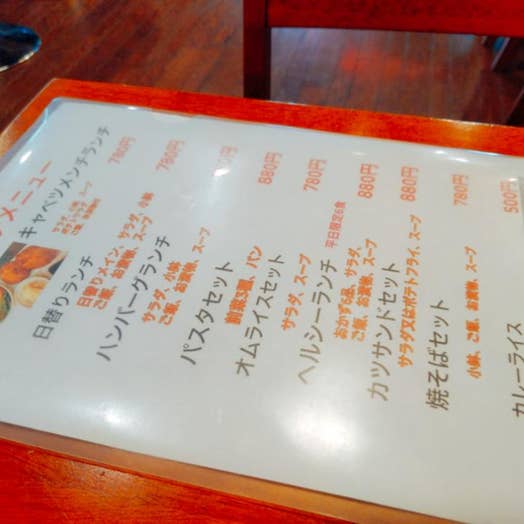 メニュー
キャベツメンチランチ
日替りランチ 780円
日替りメイン、サラダ、小鉢
ご飯、お漬物、スープ
ハンバーグランチ 780円
サラダ、小鉢
ご飯、お漬物、スープ
パスタセット 円
前菜3種、パン
オムライスセット 880円
サラダ、スープ
ヘルシーランチ 平日限定6食 780円
おかず6品、サラダ、
ご飯、お漬物、スープ 880円
カツサンドセット 880円
サラダ又はポテトフライ、スープ
焼そばセット 780円
小鉢、ご飯、お漬物、スープ
カレーライス 500円